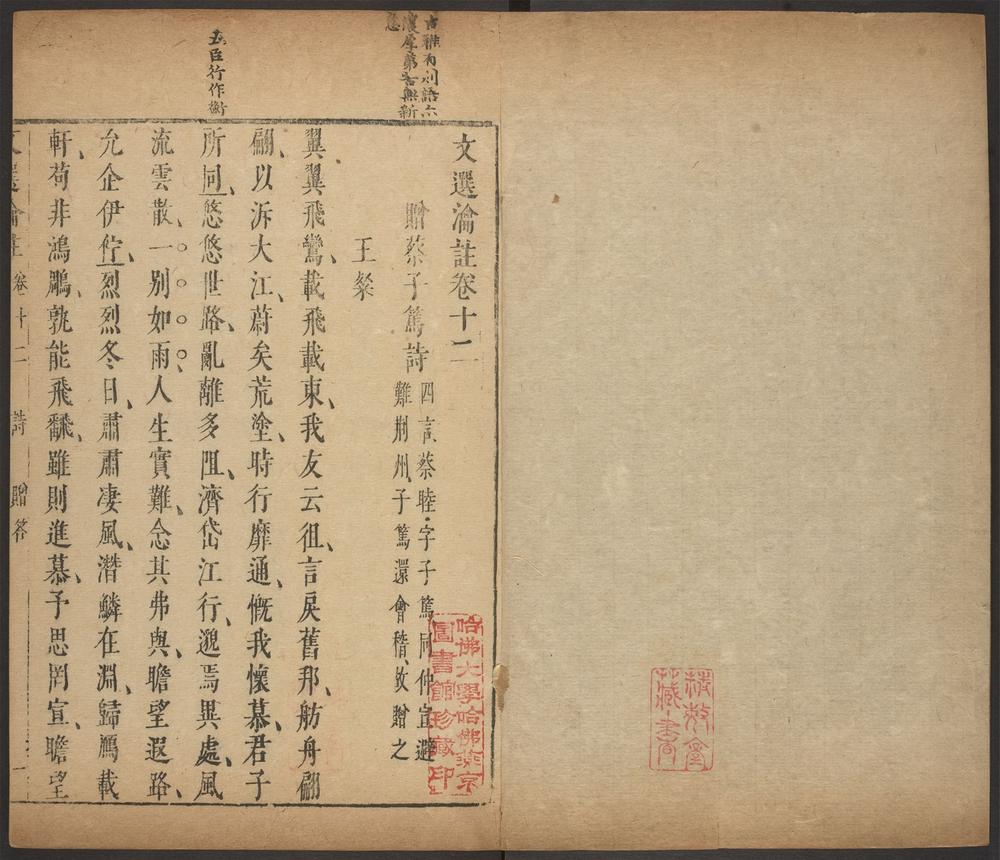 文選瀹註卷十二
贈蔡子篤詩
四言蔡睦字子篤同仲宣避
難荆州子篤還會稽故贈之
王粲
翼翼飛鸞載飛載東我友云徂言戾舊邦舫舟翩
翩以泝大江蔚矣荒塗時行靡通慨我懷慕君子
所同悠悠世路亂離多阻濟岱江行邈焉異處風
流雲散一别如雨人生實難念其弗與瞻望遐路
允企伊佇烈烈冬日肅肅凄風潛鱗在淵歸鴈載
軒苟非鴻鵰孰能飛飜雖則進慕予思罔宣瞻望
文選瀹註 卷十二 詩 贈答 一
古雅有
濃厚第舌無新
五臣行作衡
哈佛大學哈佛燕京
圖書館珍藏印
藏書